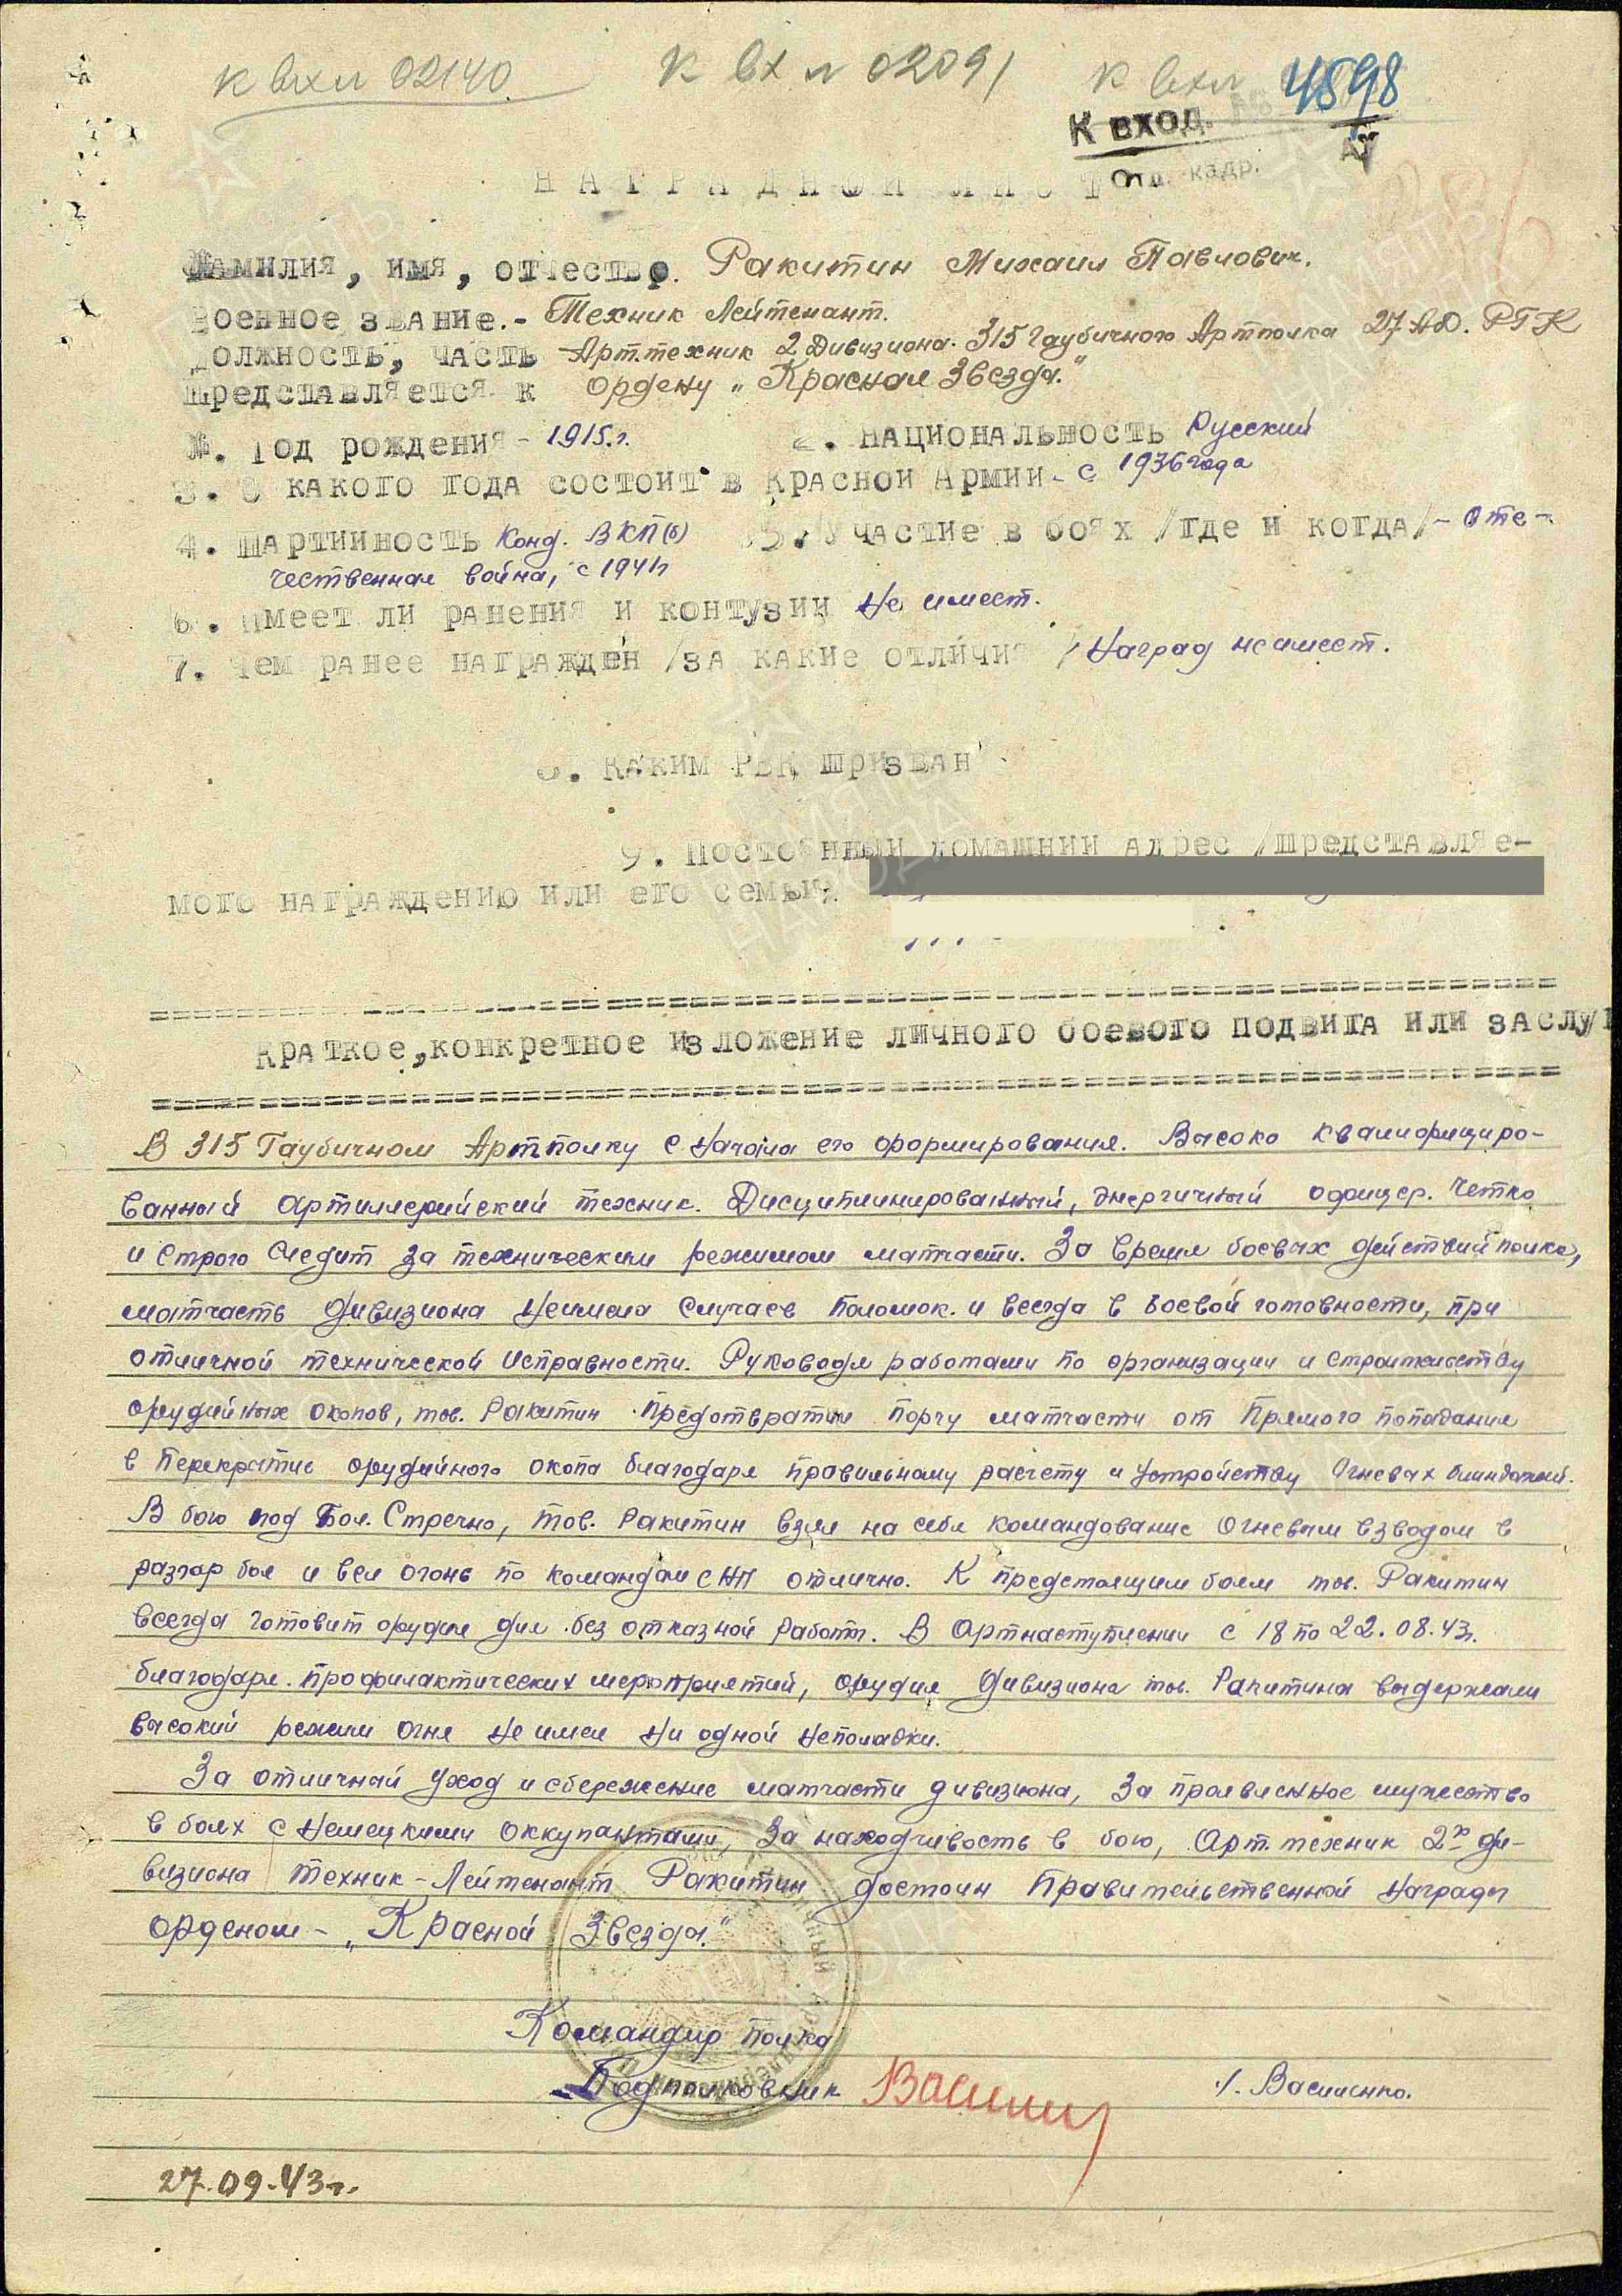 к вхл 02140
к вх л 02091
к вхл 4598
К ВХОД. №
Отд. кадр.
НАГРАДНОЙ ЛИСТ
Фамилия, имя, отчество. Ракитин Михаил Павлович.
Военное звание.- Техник Лейтенант.
Должность, часть Арт.техник 2 Дивизиона. 315 Гаубичного Артполка 27 АД. РГК
Представляется к ордену „Красная Звезда."
1. Год рождения - 1915.г. 2. Национальность Русский
3. С какого года состоит в Красной Армии - с 1936 года
4. Партийность Канд. ВКП(б) 5. Участие в боях /где и когда/ - Оте-
чественная война, с 1941г
6. Имеет ли ранения и контузии Не имеет.
7. Чем ранее награжден /за какие отличия/ Наград не имеет.
8. Каким РВК призван
9. Постоянный домашний адрес /представляе-
мого награждению или его семьи.
Краткое, конкретное изложение личного боевого подвига или заслуг
В 315 Гаубичном Артполку с начала его формирования. Высоко квалифициро-
ванный артиллерийский техник. Дисциплинированный, энергичный офицер. Четко
и строго следит за техническим режимом матчасти. За время боевых действий полка,
матчасть дивизиона неимела случаев поломок. и всегда в боевой готовности, при
отличной технической исправности. Руководя работами по организации и строительству
орудийных окопов, тов. Ракитин предотвратил порчу матчасти от прямого попадания
в перекрытие орудийного окопа благодаря правильному расчету и устройству огневых блиндажей.
В бою под Бол. Стречно, тов. Ракитин взял на себя командование огневым взводом в
разгар боя и вел огонь по командам с НП отлично. К предстоящим боям тов. Ракитин
всегда готовит орудия для без отказной работы. В Артнаступлении с 18 по 22.08.43г.
благодаря. профилактических мероприятий, орудия дивизиона тов. Ракитина выдержали
высокий режим огня не имея ни одной неполадки.
За отличный уход и сбережение матчасти дивизиона, за проявленное мужество
в боях с немецкими оккупантами, за находчивость в бою, Арт. техник 2го ди-
визиона техник-Лейтенант Ракитин достоин Правительственной награды
орденом - „Красной Звезды."
Командир полка
Подполковник /. Василенко.
27.09.43г.